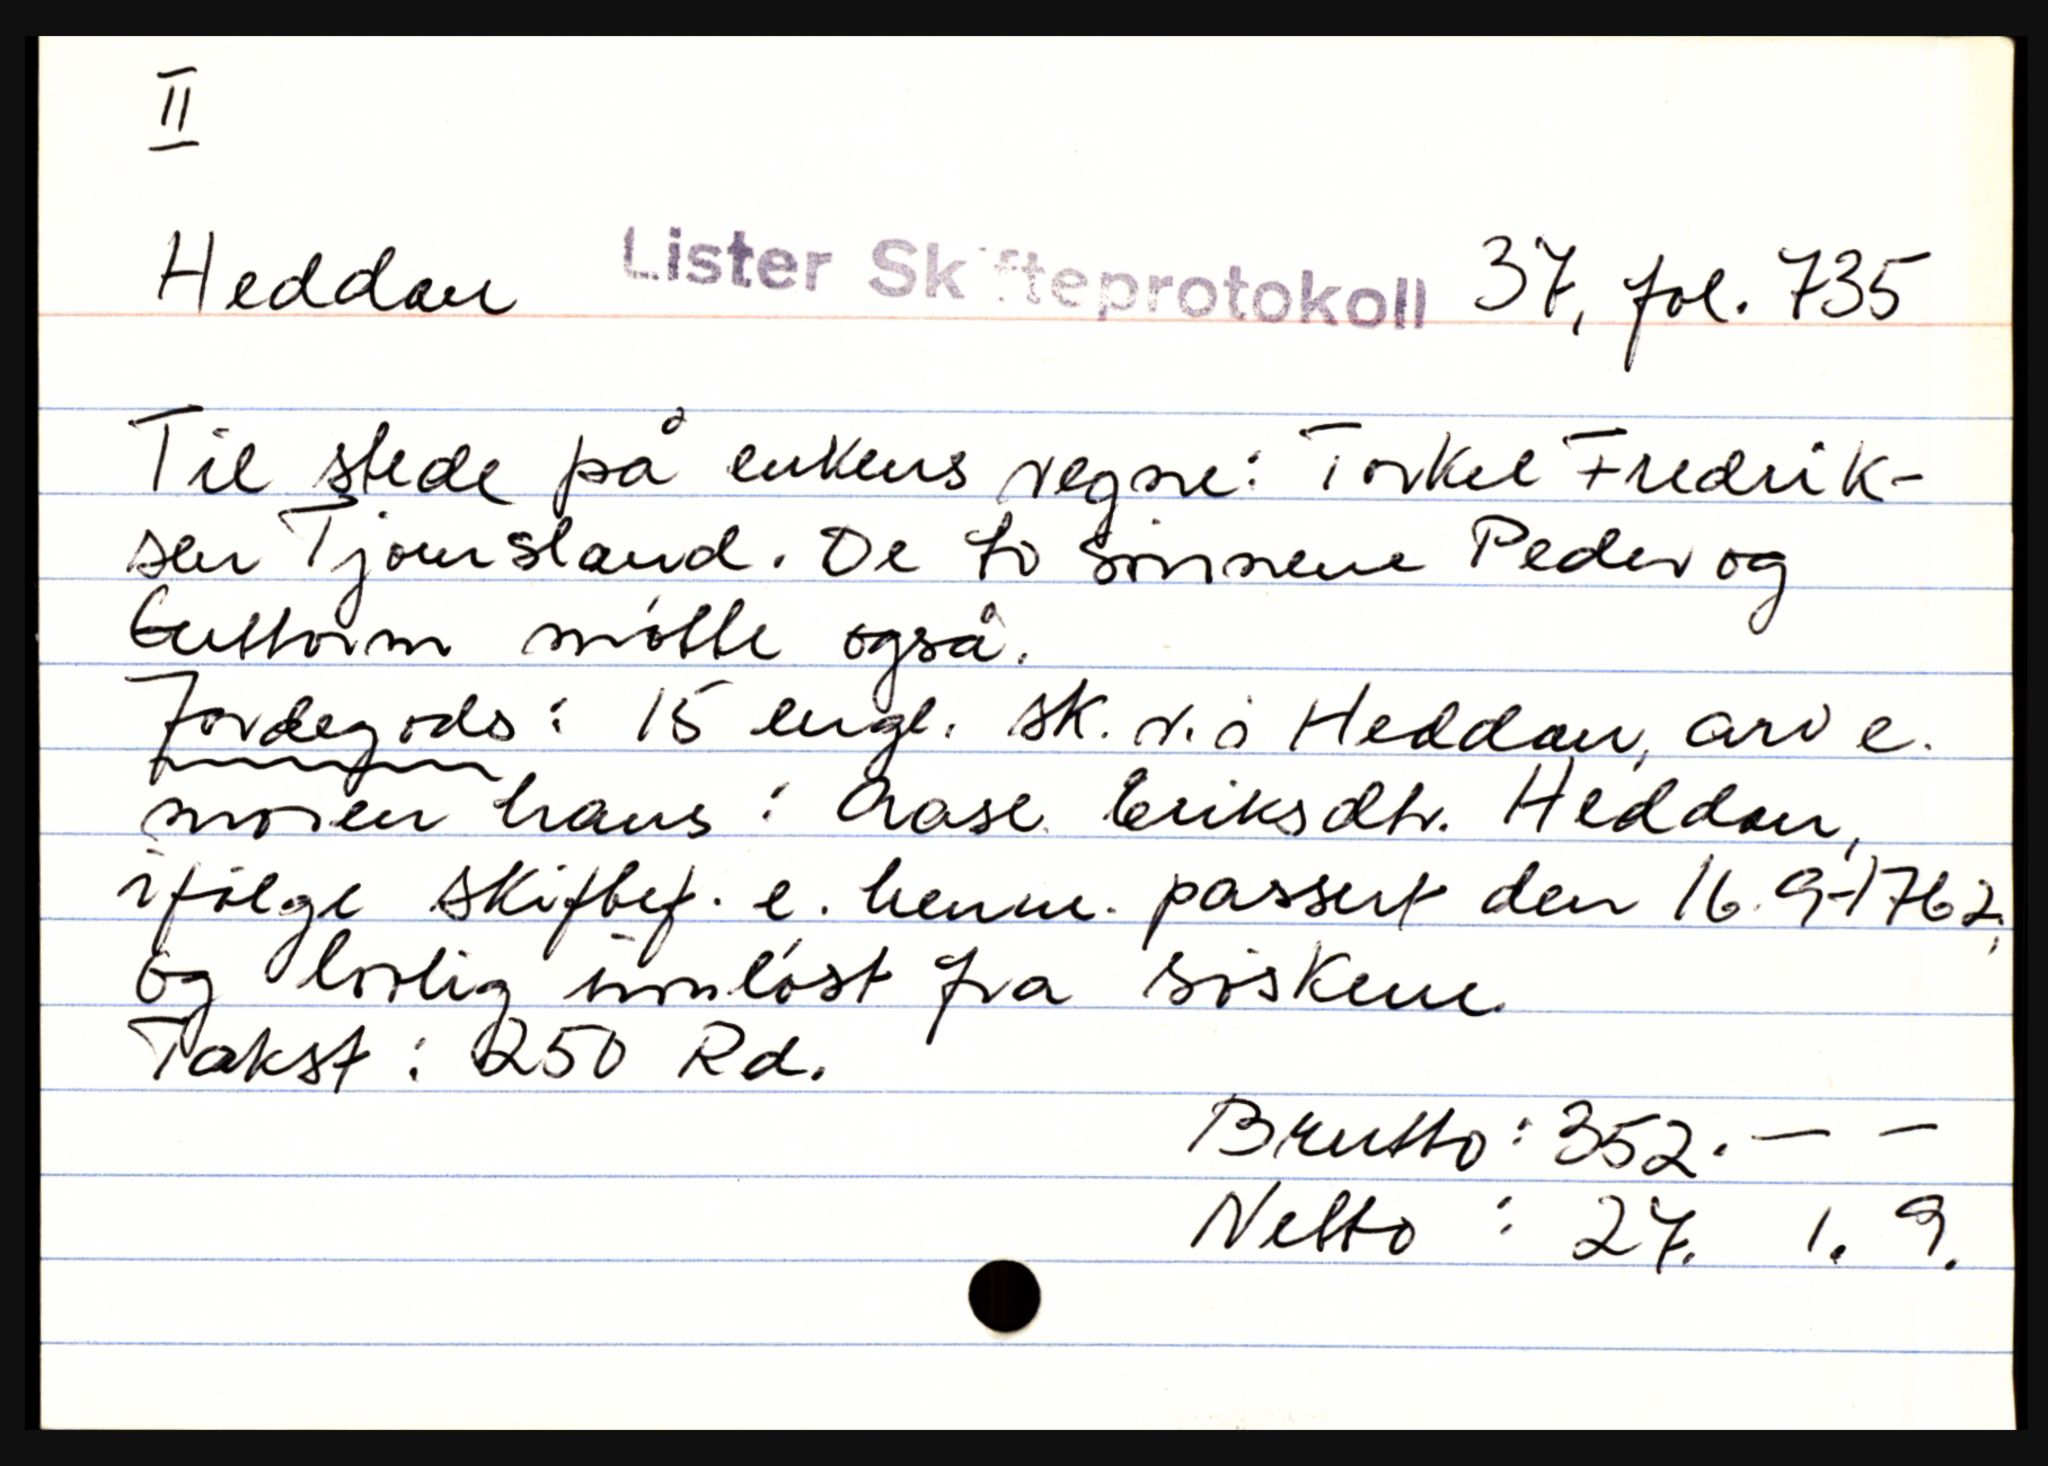 II
Heddan Lister Skifteprotokoll 37, fol. 735
Til stede på enkens vegne: Torkel Fredrik-
sen Tjomsland. De to sønnene Peder og
Guttorm møtte også.
Jordegods: 15 engl. sk. v. i Heddan, arv e.
moren hans: Aase Eriksdtr. Heddan,
ifølge skiftbef. e. henne passert den 16.9-1762,
og lovlig innløst fra søsknene.
Takst: 250 Rd.
Brutto: 352. — –
Netto : 27. 1. 9.